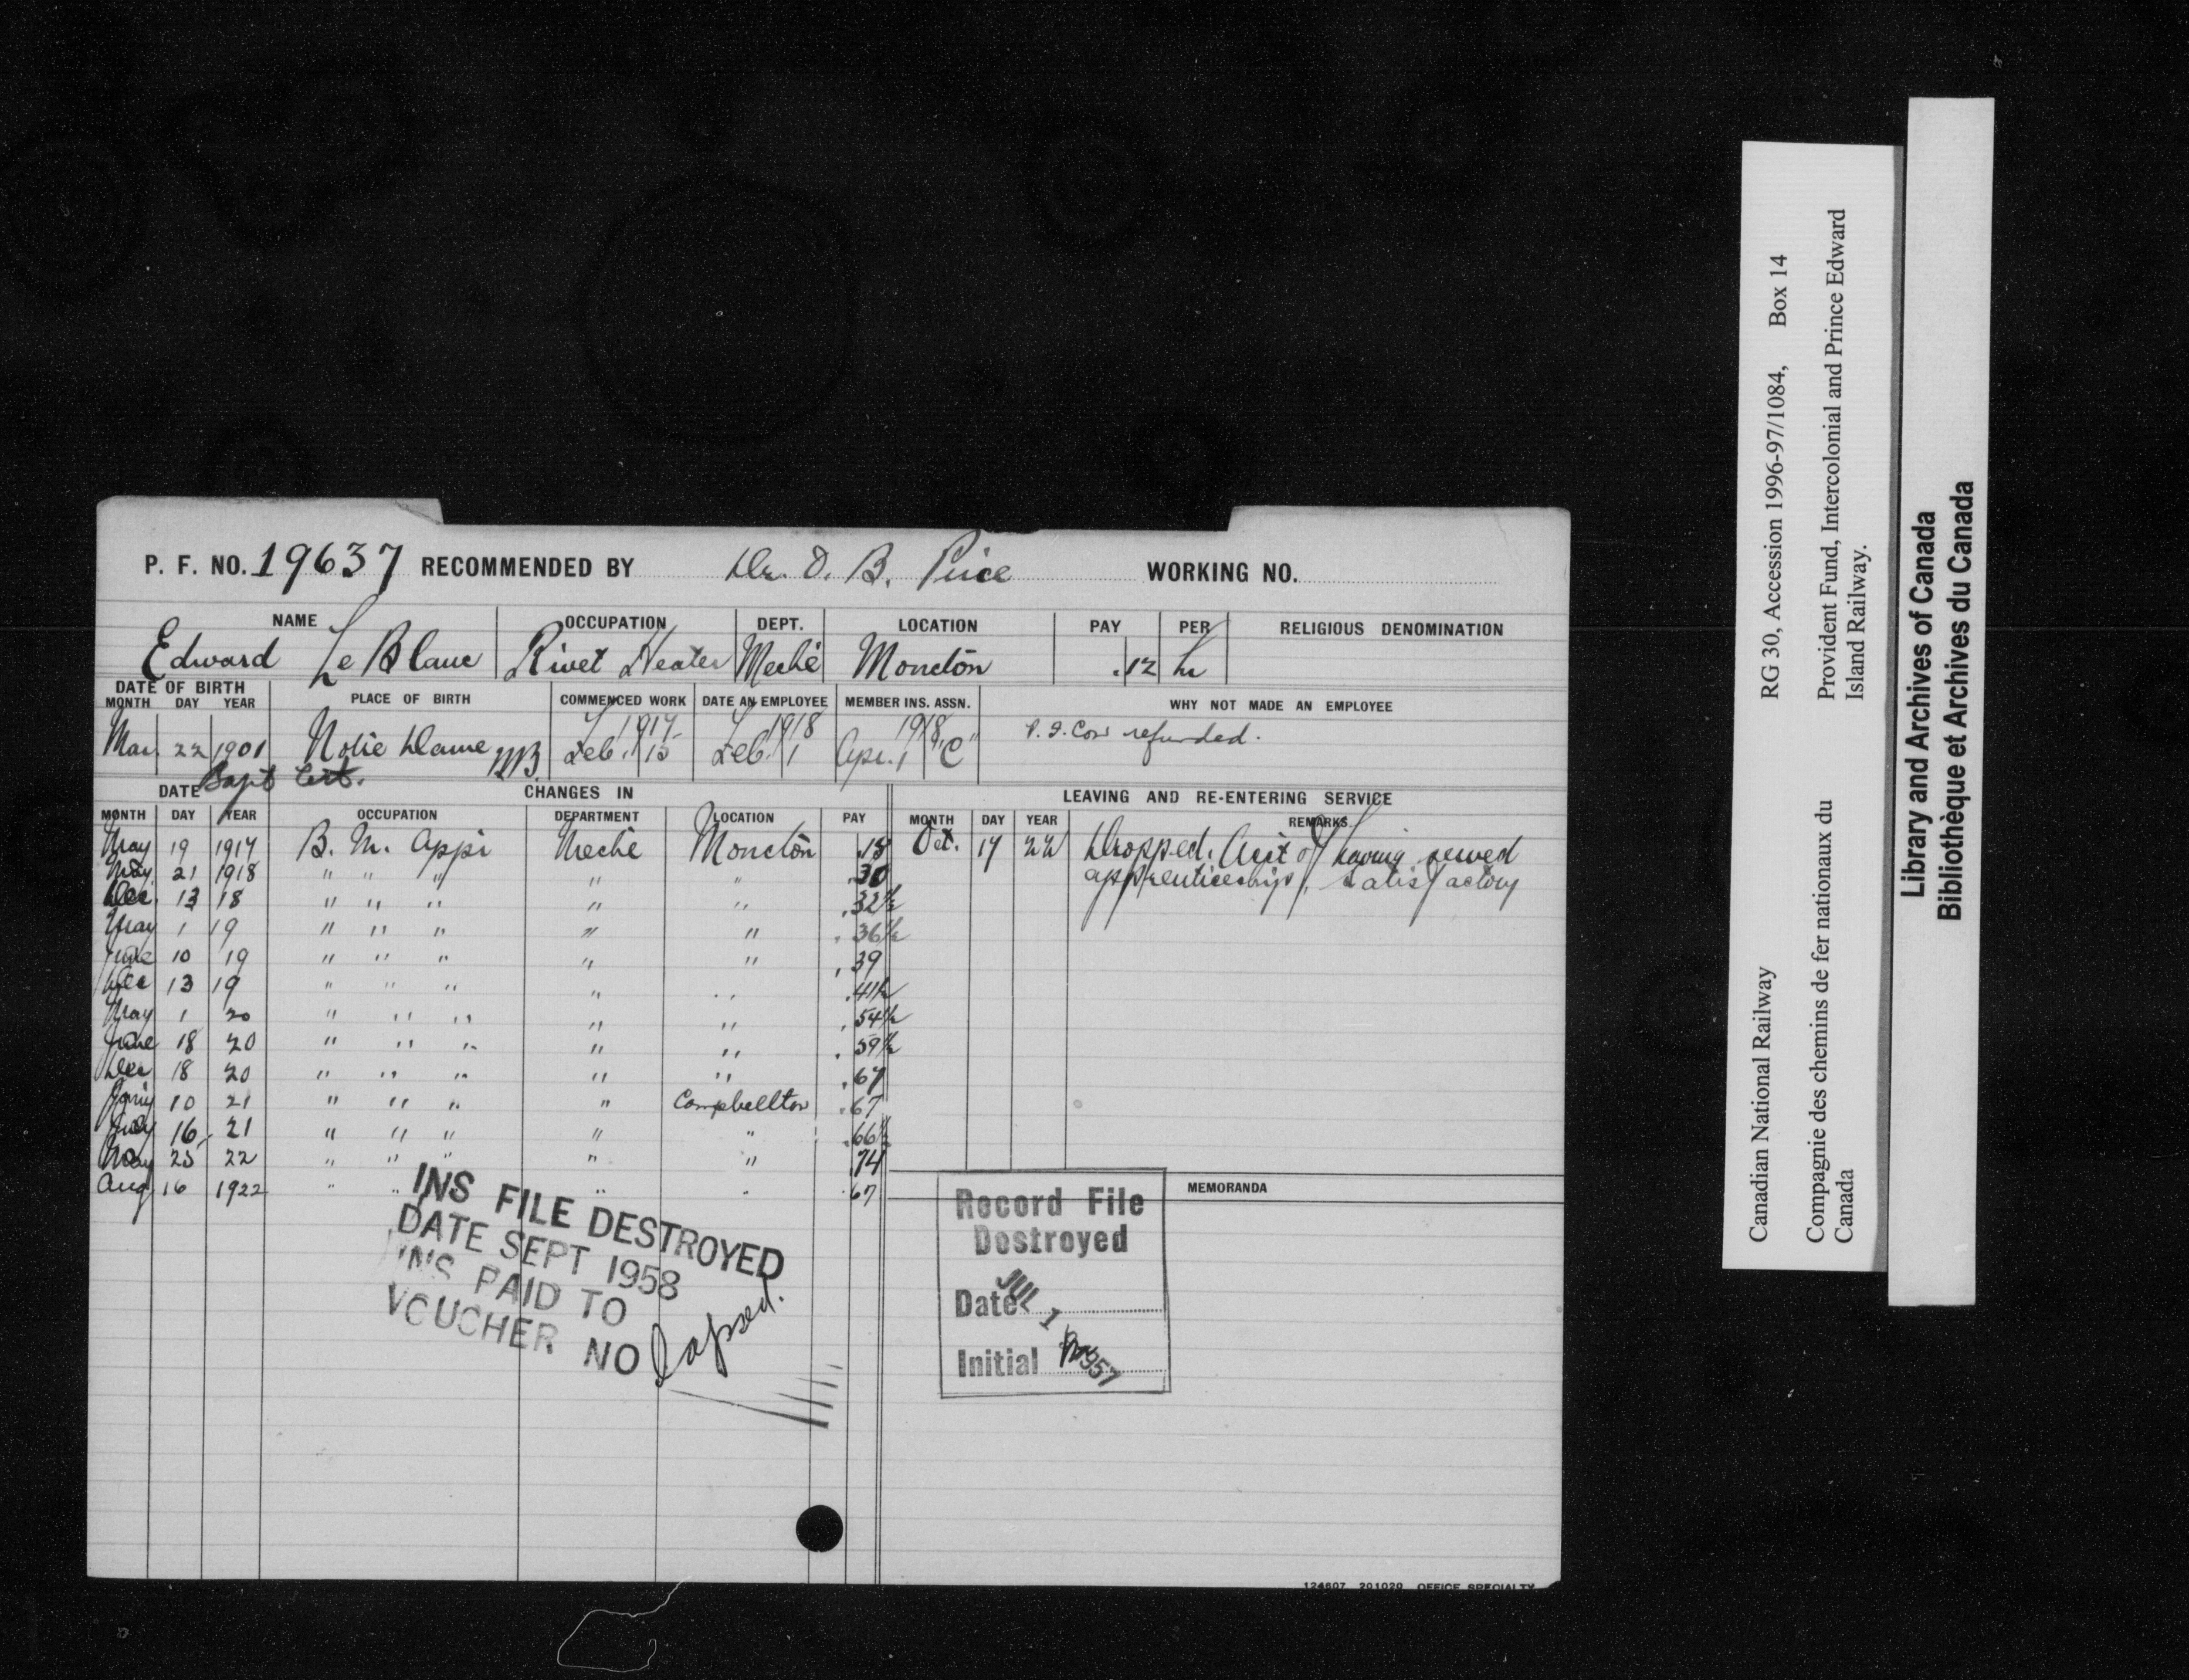 P. F. NO. 19637 RECOMMENDED BY Dr. O. B. Price WORKING NO.
NAME OCCUPATION DEPT. LOCATION PAY PER RELIGIOUS DENOMINATION
Edward LeBlanc Rivet Heater Mechl Moncton .12 hr
DATE OF BIRTH PLACE OF BIRTH COMMENCED WORK DATE AN EMPLOYEE MEMBER INS. ASSN. WHY NOT MADE AN EMPLOYEE
MONTH DAY YEAR
1917 1918 1918
Mar. 22 1901 Notre Dame NB. Feb. 15 Feb. 1 Apr. 1 "C" P.F. Con refunded.
Bapt Cert.
DATE CHANGES IN LEAVING AND RE-ENTERING SERVICE
MONTH DAY YEAR OCCUPATION DEPARTMENT LOCATION PAY MONTH DAY YEAR REMARKS
May 19 1917 B. M. Appr Mechl Moncton .15 Oct. 17 22 Dropped. Acct of having served
May 21 1918 " " " " " .30 apprenticeship. Satisfactory
Dec. 13 18 " " " " " .32½
May 1 19 " " " " " .36½
June 10 19 " " " " " .39
Dec 13 19 " " " " " .41½
May 1 20 " " " " " .54½
June 18 20 " " " " " .59½
Dec 18 20 " " " " " .67
10 21 " " " " Campbellton .67
July 16 21 " " " " " .66½
May 25 22 " " " " " .74
Aug 16 1922 " " " " .67
INS FILE DESTROYED
DATE SEPT 1958
INS PAID TO
VOUCHER NO lapsed.
MEMORANDA
Record File
Destroyed
Date JUL 1 1957
Initial
124607 201020 OFFICE SPECIALTY
Canadian National Railway RG 30, Accession 1996-97/1084, Box 14
Compagnie des chemins de fer nationaux du Provident Fund, Intercolonial and Prince Edward
Canada Island Railway.
Library and Archives of Canada
Bibliothèque et Archives du Canada